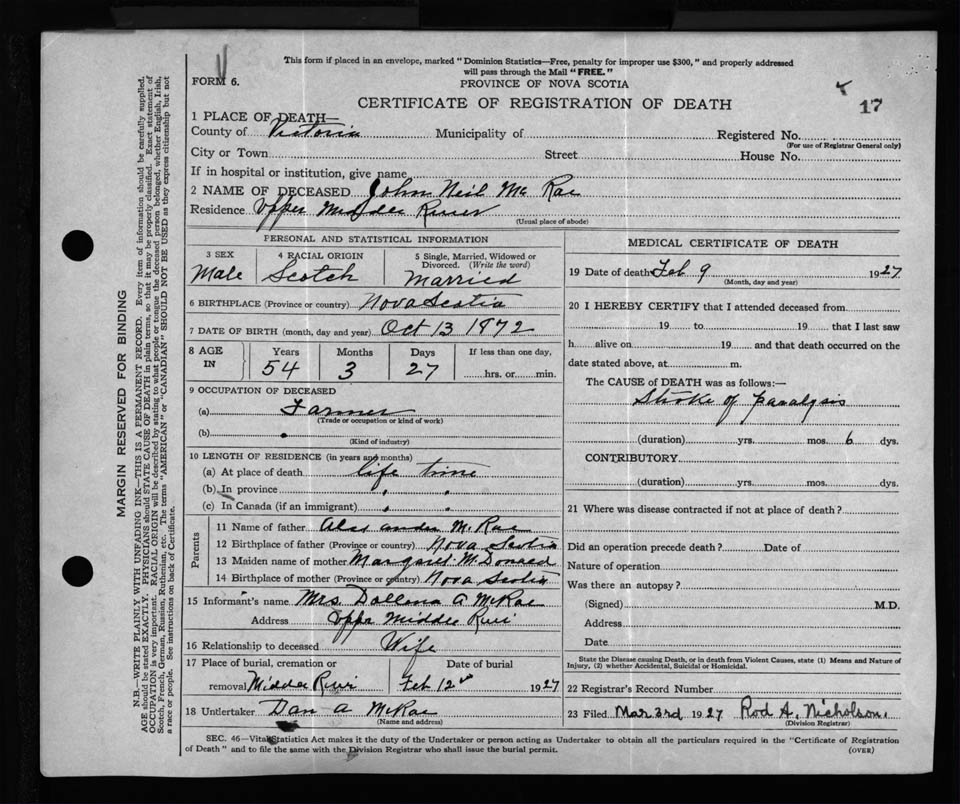 This form if placed in an envelope, marked "Dominion Statistics—Free, penalty for improper use $300," and properly addressed
will pass through the Mail "FREE."
FORM 6.
PROVINCE OF NOVA SCOTIA
CERTIFICATE OF REGISTRATION OF DEATH
17
1 PLACE OF DEATH—
County of Victoria Municipality of Registered No.
(For use of Registrar General only)
City or Town Street House No.
If in hospital or institution, give name
2 NAME OF DECEASED John Neil Mc Rae
Residence Upper Middle River
(Usual place of abode)
PERSONAL AND STATISTICAL INFORMATION
3 SEX 4 RACIAL ORIGIN 5 Single, Married, Widowed or
Divorced. (Write the word)
Male Scotch Married
6 BIRTHPLACE (Province or country) Nova Scotia
7 DATE OF BIRTH (month, day and year) Oct 13 1872
8 AGE IN Years Months Days If less than one day,
54 3 27 hrs. or min.
9 OCCUPATION OF DECEASED
(a) Farmer
(Trade or occupation or kind of work)
(b)
(Kind of industry)
10 LENGTH OF RESIDENCE (in years and months)
(a) At place of death life time
(b) In province
(c) In Canada (if an immigrant)
Parents
11 Name of father Alexander McRae
12 Birthplace of father (Province or country) Nova Scotia
13 Maiden name of mother Margaret McDonald
14 Birthplace of mother (Province or country) Nova Scotia
15 Informant's name Mrs. Dollena A McRae
Address Upper Middle River
16 Relationship to deceased Wife
17 Place of burial, cremation or Date of burial
removal Middle River Feb 12th 1927
18 Undertaker Dan A McRae
(Name and address)
MEDICAL CERTIFICATE OF DEATH
19 Date of death Feb 9 1927
(Month, day and year)
20 I HEREBY CERTIFY that I attended deceased from
19 to 19 that I last saw
h alive on 19 and that death occurred on the
date stated above, at m.
The CAUSE of DEATH was as follows:—
Stroke of paralysis
(duration) yrs. mos. 6 dys.
CONTRIBUTORY
(duration) yrs. mos. dys.
21 Where was disease contracted if not at place of death?
Did an operation precede death? Date of
Nature of operation
Was there an autopsy?
(Signed) M.D.
Address
Date
State the Disease causing Death, or in death from Violent Causes, state (1) Means and Nature of
Injury, (2) whether Accidental, Suicidal or Homicidal.
22 Registrar's Record Number
23 Filed Mar 3rd 1927 Rod A. Nicholson.
(Division Registrar)
SEC. 46—Vital Statistics Act makes it the duty of the Undertaker or person acting as Undertaker to obtain all the particulars required in the "Certificate of Registration
of Death" and to file the same with the Division Registrar who shall issue the burial permit.
(OVER)
MARGIN RESERVED FOR BINDING
N.B.—WRITE PLAINLY WITH UNFADING INK—THIS IS A PERMANENT RECORD. Every item of information should be carefully supplied.
AGE should be stated EXACTLY. PHYSICIANS should STATE CAUSE OF DEATH in plain terms, so that it may be properly classified. Exact statement of
OCCUPATION is very important. RACIAL ORIGIN will be described by stating to what people or tongue the deceased person belonged, whether English, Irish,
Scotch, French, German, Russian, Ruthenian, etc. The terms "AMERICAN" or "CANADIAN" SHOULD NOT BE USED as they express citizenship but not
a race or people. See instructions on back of Certificate.